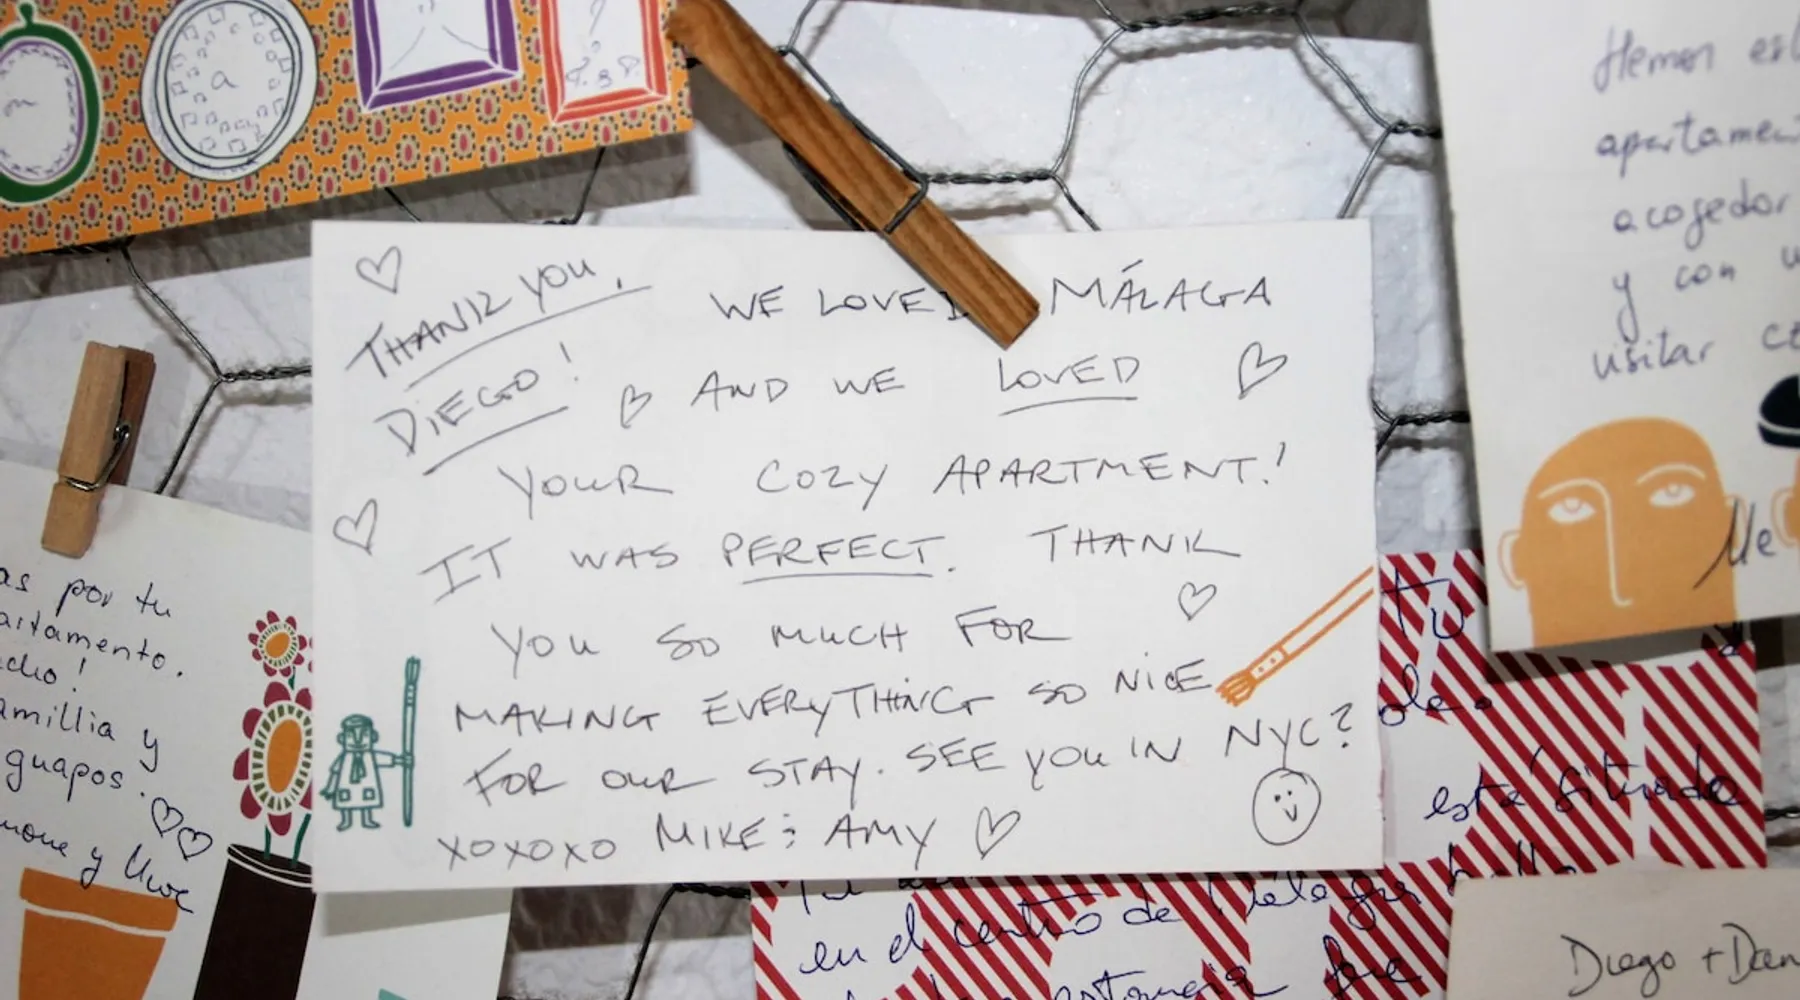 THANK YOU,
DIEGO!
WE LOVED MÁLAGA
AND WE LOVED
YOUR COZY APARTMENT!
IT WAS PERFECT. THANK
YOU SO MUCH FOR
MAKING EVERYTHING SO NICE
FOR OUR STAY. SEE YOU IN NYC?
XOXOXO MIKE & AMY
a
Hemos
apartamen
acogedor
y con
visitar
Me
as por tu
artamento.
cho!
amillia y
guapos.
y Uwe
tu
está situado
en el centro de Málaga
estancia fue
Diego + Dan